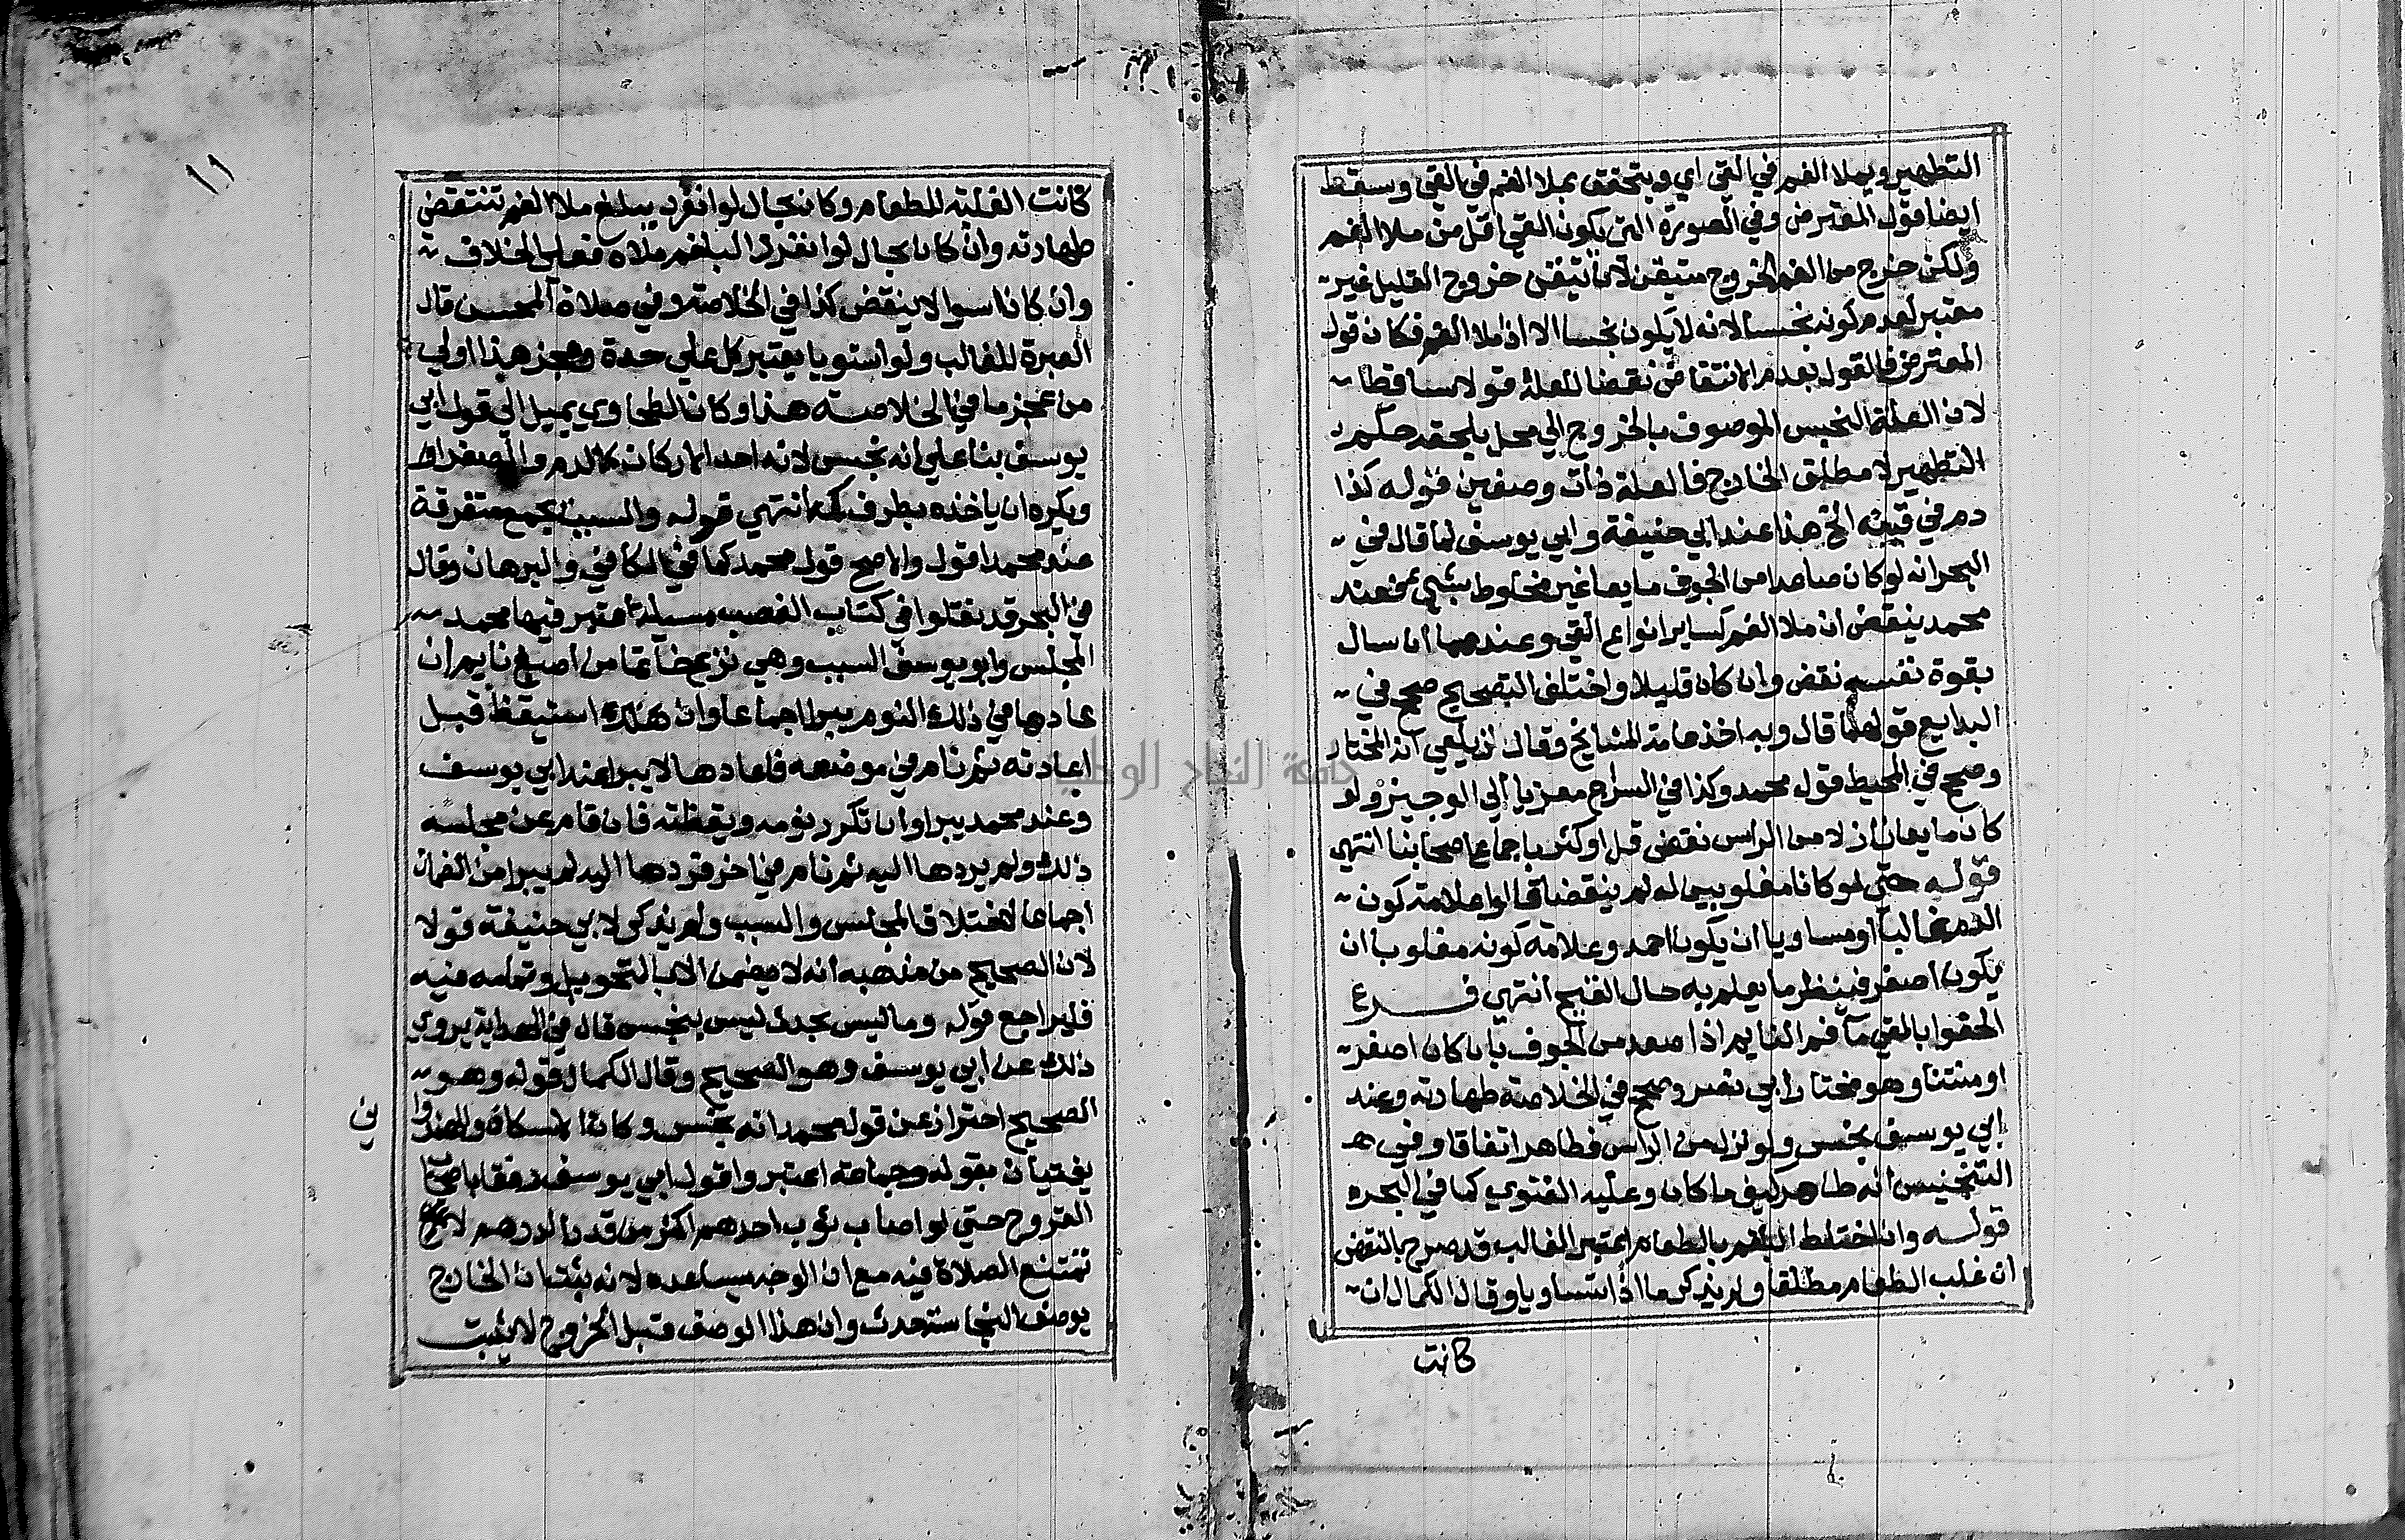 التطهير وبملا الفم في القي اي ويتحقق بملا الفم في القي وسقط
ايضا قول المعترض وفي الصورة التي يكون القي اقل من ملا الفم
ولكن خرج من الفم الخروج متيقن لان تيقن خروج القليل غير
معتبر لعدم كونه نجسا لانه لا يكون نجسا الا اذا ملا الفم فكان قول
المعترض فالقول بعدم الانتقاض نقضا للعلة قولا ساقطا
لان العلة النجس الموصوف بالخروج الي محل يلحقه حكم
التطهير لا مطلق الخارج فالعلة ذات وصفين قوله كذا
دم في قيئه الخ هذا عند ابي حنيفة وابي يوسف لما قال في
البحر انه لو كان صاعدا من الجوف مايعا غير مخلوط بشي فعند
محمد ينقض ان ملا الفم كساير انواع القي وعندهما ان سال
بقوة نفسه نقض وان كان قليلا واختلف التصحيح صحح في
البدايع قولهما قال وبه اخذ عامة المشايخ وقال الزيلعي انه المختار
وصحح في المحيط قول محمد وكذا في السراج معزيا الي الوجيز ولو
كان مايعا نازلا من الراس نقض قل او كثر باجماع اصحابنا انتهي
قوله حتي لو كانا مغلوبين له لم ينقضا قالوا علامة كون
الدم غالبا او مساويا ان يكون احمر وعلامة كونه مغلوبا ان
يكون اصفر فينظر ما يعلم به حال القيح انتهي فرع
الحقوا بالقي ما فم النايم اذا صعد من الجوف بان كان اصفر
او منتنا وهو مختار ابي نصر وصحح في الخلاصة طهارته وعند
ابي يوسف نجس ولو نزل من الراس فطاهر اتفاقا وفي
التجنيس انه طاهر كيف ما كان وعليه الفتوي كما في البحر
قوله وان اختلط البلغم بالطعام اعتبر الغالب قد صرح بالنقض
ان غلب الطعام مطلقا ولم يذكر ما اذا تساويا وقال الكمال ان
كانت
١١
كانت الغلبة للطعام وكان بحال لو انفرد يبلغ ملا الفم تنتقض
طهارته وان كان بحال لو انفرد البلغم ملاه فعلي الخلاف
وان كانا سوا لا ينقض كذا في الخلاصة وفي صلاة المحسن قال
العبرة للغالب ولو استويا يعتبر كل علي حدة وعجز هذا اولي
من عجز ما في الخلاصة هذا وكان الطحاوي يميل الي قول ابي
يوسف بنا علي انه نجس لانه احد الاركان كالدم والصفرا
ويكره ان ياخذه بطرف كمه انتهي قوله والسبب يجمع متفرقة
عند محمد اقول والاصح قول محمد كما في الكافي والبرهان وقال
في البحر قد نقلوا في كتاب الغصب مسيلة اعتبر فيها محمد
المجلس وابو يوسف السبب وهي نزع خاتما من اصبع نايم ان
عادها في ذلك النوم يبرا اجماعا وان استيقظ قبل
اعادته ثم نام في موضعه فاعادها لا يبرا عند ابي يوسف
وعند محمد يبرا وان تكرر نومه ويقظته فان قام عن مجلسه
ذلك ولم يردها اليه ثم نام في اخر فردها اليه لم يبرا من الضمان
اجماعا لاختلاف المجلس والسبب ولم يذكر لابي حنيفة قولا
لان الصحيح من مذهبه انه لا يضمن الا بالتحويل وتمامه فيه
فليراجع قوله وما ليس بحدث ليس بنجس قال في الهداية يروي
ذلك عن ابي يوسف وهو الصحيح وقال الكمال قوله وهو
الصحيح احتراز عن قول محمد انه نجس وكان الاسكاف والهندوا
ني
يفتيان بقوله وجماعة اعتبروا قول ابي يوسف رفقا باصحاب
القروح حتي لو اصاب ثوب احدهم اكثر من قدر الدرهم لا
تمتنع الصلاة فيه مع ان الوجه يساعده لانه ثبت ان الخارج
بوصف النجاسة حدث وان هذا الوصف قبل الخروج لا يثبت
جامعة النجاح الوطنية